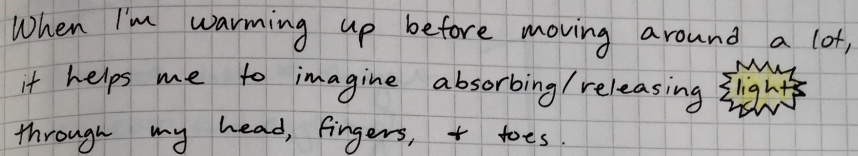 When I'm warming up before moving around a lot,
it helps me to imagine absorbing/releasing light
through my head, fingers, + toes.